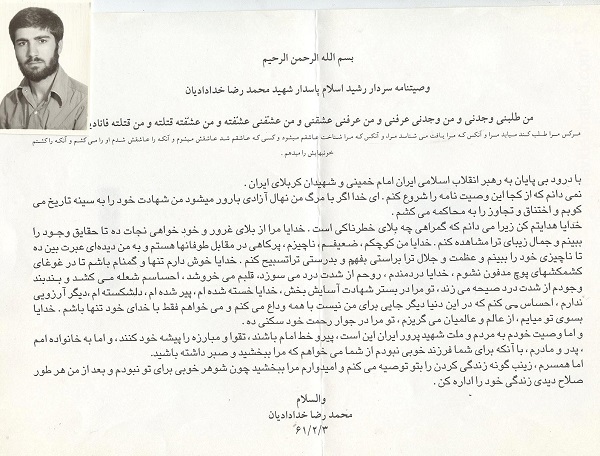 بسم الله الرحمن الرحیم
وصیتنامه سردار رشید اسلام پاسدار شهید محمد رضا خدادادیان
من طلبنی وجدنی و من وجدنی عرفنی و من عرفنی عشقنی و من عشقنی عشقته و من عشقته قتلته و من قتلته فانادیه
هرکس مرا طلب کند میابد مرا و آنکس که مرا یافت می شناسد مرا، و آنکس که مرا شناخت عاشقم میشود و کسی که عاشقم شد عاشقش میشوم و آنکه را عاشقش شدم او را می کشم و آنکه را کشتم
خونبهایش را میدهم.
با درود بی پایان به رهبر انقلاب اسلامی ایران امام خمینی و شهیدان کربلای ایران.
نمی دانم که از کجا این وصیت نامه را شروع کنم. ای خدا اگر با مرگ من نهال آزادی بارور میشود من شهادت خود را به سینه تاریخ می
کوبم و اختناق و تجاوز را به محاکمه می کشم.
خدایا هدایتم کن زیرا می دانم که گمراهی چه بلای خطرناکی است. خدایا مرا از بلای غرور و خود خواهی نجات ده تا حقایق وجود را
ببینم و جمال زیبای ترا مشاهده کنم. خدایا من کوچکم، ضعیفم، ناچیزم، پرکاهی در مقابل طوفانها هستم و به من دیده‌ای عبرت بین ده
تا ناچیزی خود را ببینم و عظمت و جلال ترا براستی بفهم و بدرستی تراتسبیح کنم. خدایا خوش دارم تنها و گمنام باشم تا در غوغای
کشمکشهای پوچ مدفون نشوم، خدایا دردمندم، روحم از شدت درد می سوزد، قلبم می خروشد، احساسم شعله می کشد و بندبند
وجودم از شدت درد صیحه می زند، تو مرا در بستر شهادت آسایش بخش، خدایا خسته شده ام، پیر شده ام، دلشکسته ام، دیگر آرزویی
ندارم، احساس می کنم که در این دنیا دیگر جایی برای من نیست با همه وداع می کنم و می خواهم فقط با خدای خود تنها باشم. خدایا
بسوی تو میایم، از عالم و عالمیان می گریزم، تو مرا در جوار رحمت خود سکنی ده.
و اما وصیت خودم به مردم و ملت شهید پرور ایران این است، پیرو خط امام باشند، تقوا و مبارزه را پیشه خود کنند، و اما به خانواده امم
، پدر و مادرم، با آنکه برای شما فرزند خوبی نبودم از شما می خواهم که مرا ببخشید و صبر داشته باشید.
اما همسرم، زینب گونه زندگی کردن را بتو توصیه می کنم و امیدوارم مرا ببخشید چون شوهر خوبی برای تو نبودم و بعد از من هر طور
صلاح دیدی زندگی خود را اداره کن.
والسلام
محمد رضا خدادادیان
۶۱/۲/۳